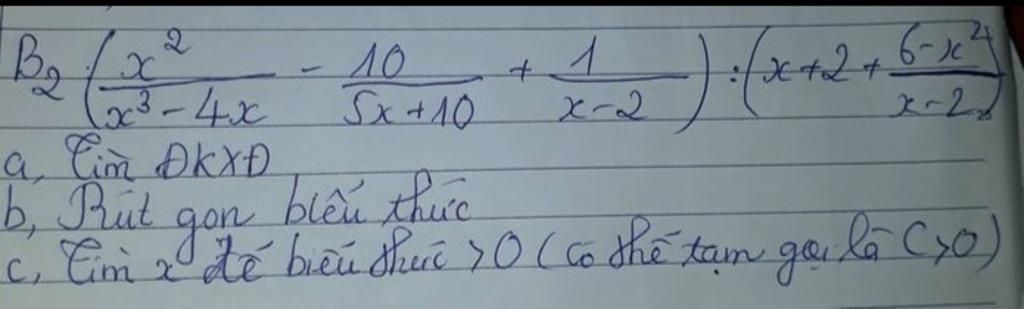 B₂ (x²/(x³-4x) - 10/(5x+10) + 1/(x-2)) : (x+2+(6-x²)/(x-2))
a, Tìm ĐKXĐ
b, Rút gọn biểu thức
c, Tìm x để biểu thức >0 (có thể tạm gọi là C>0)